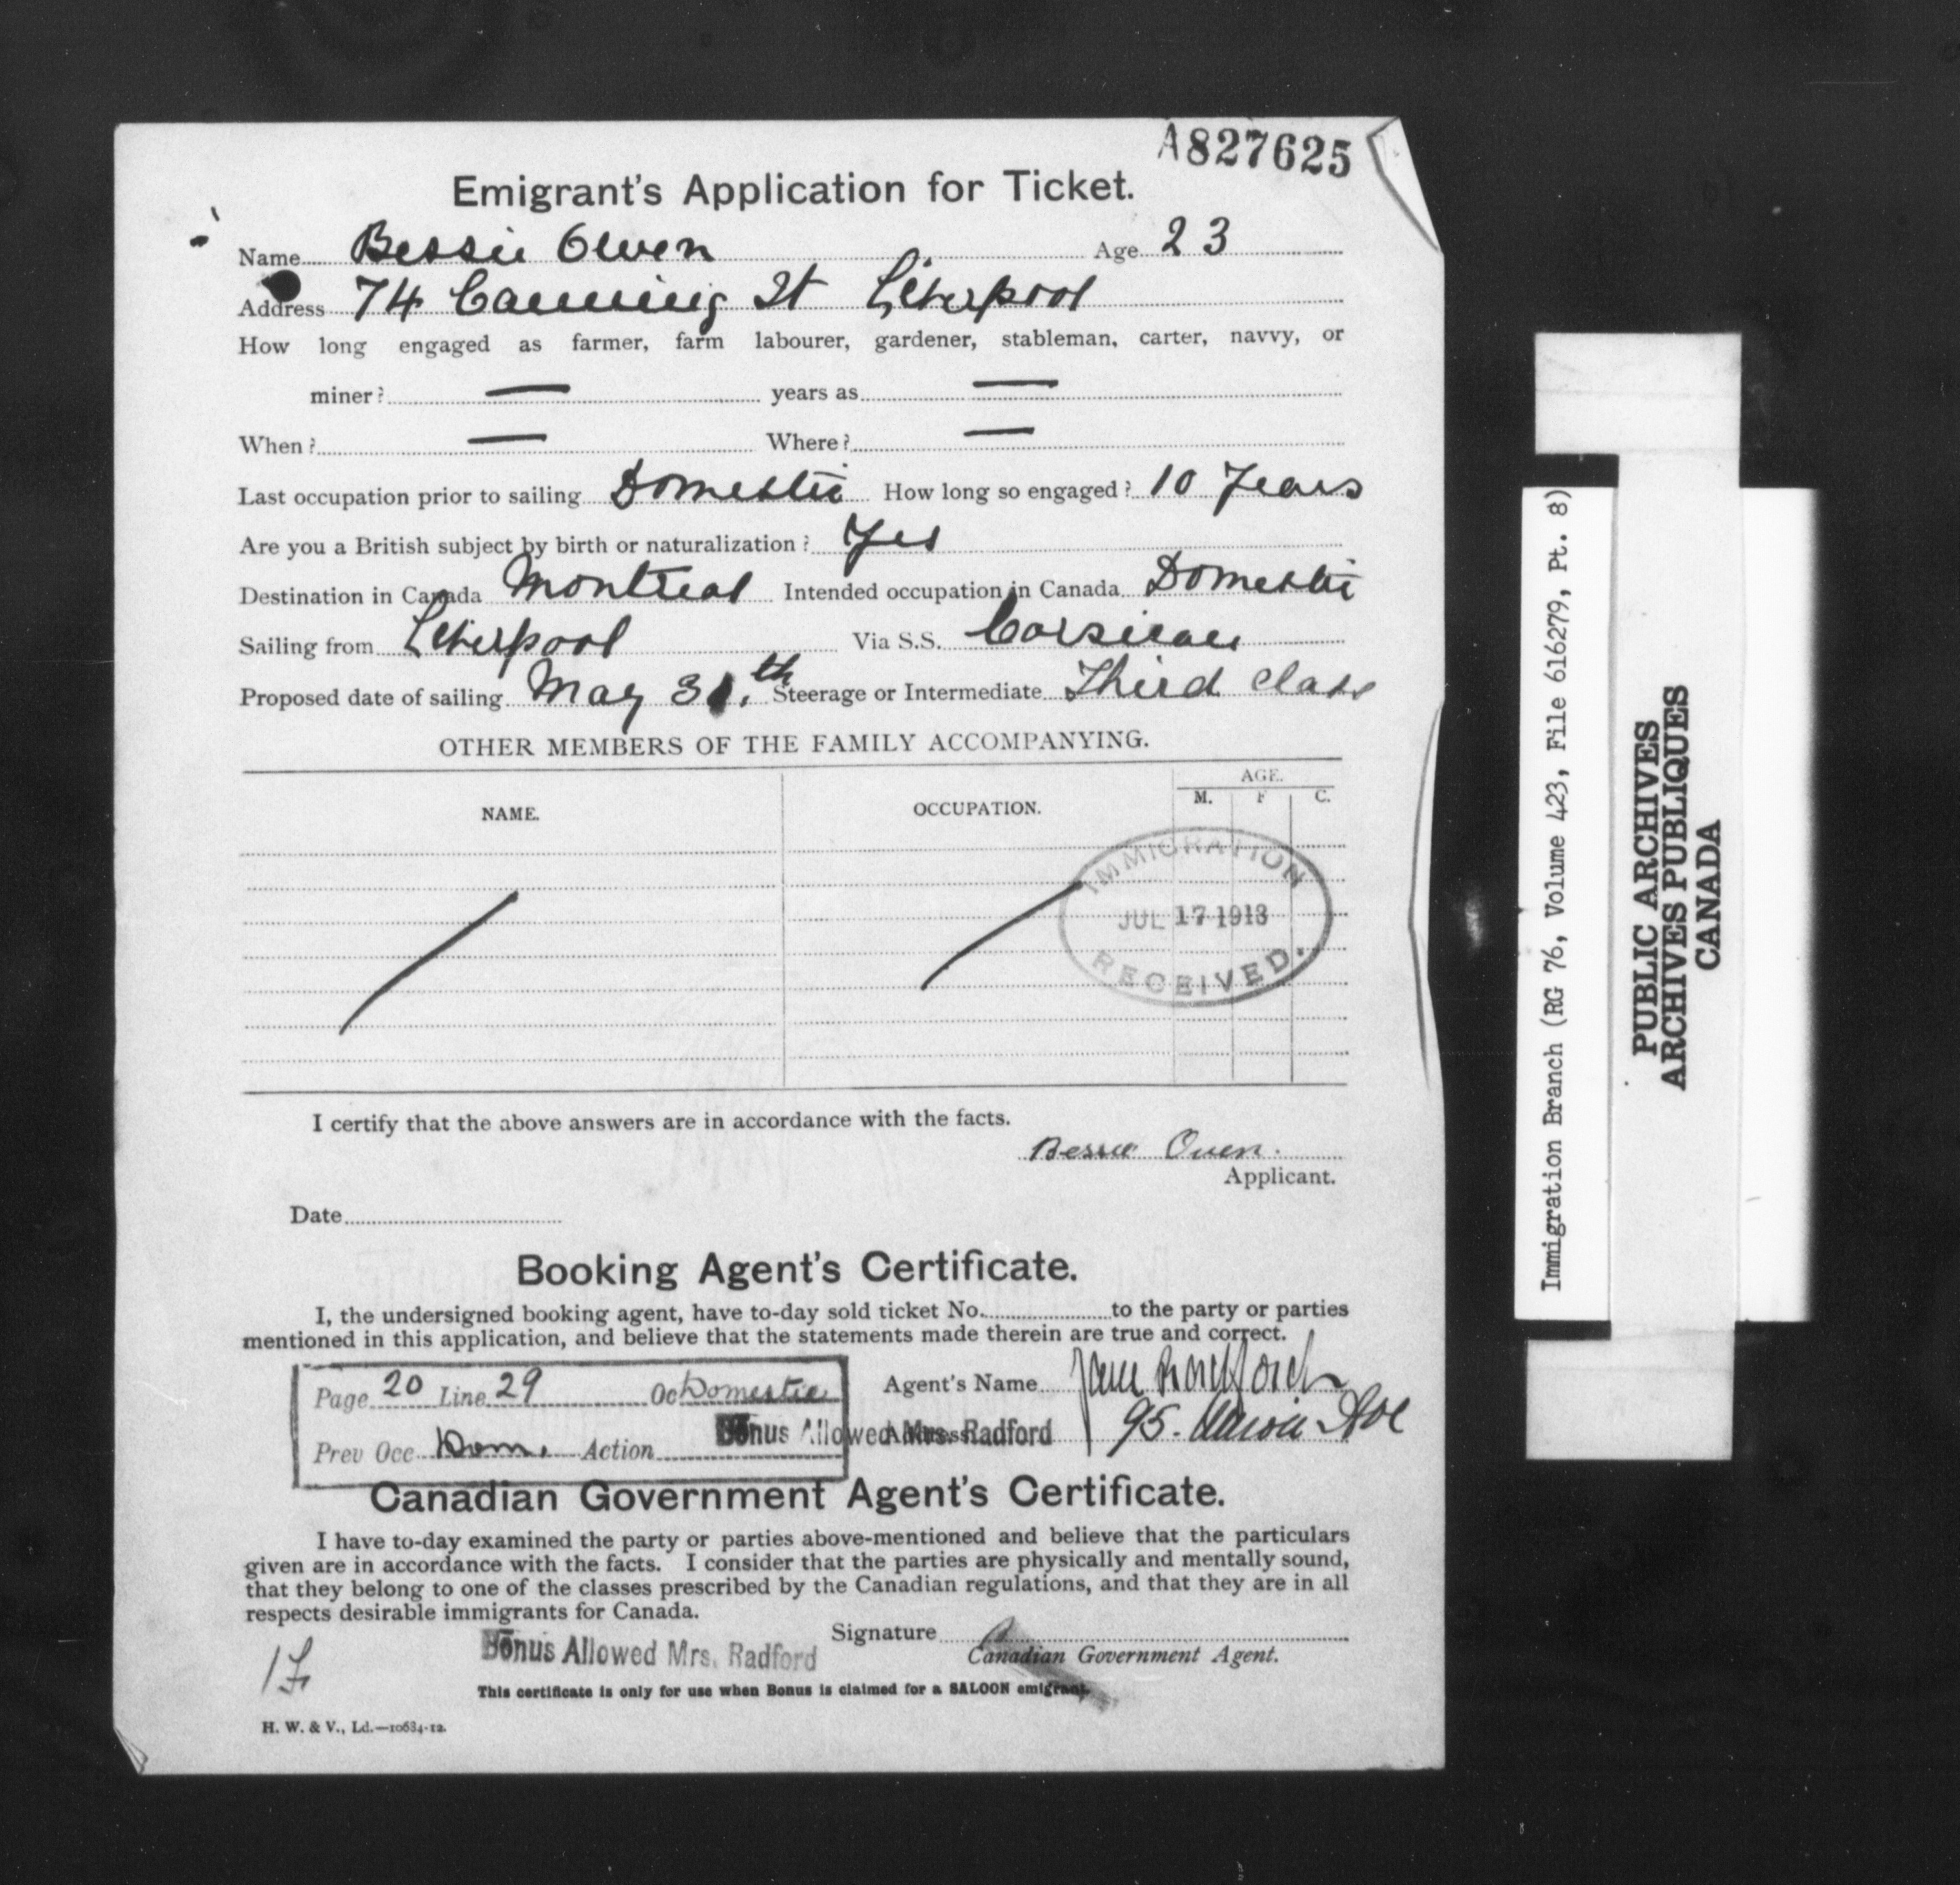 A827625
Emigrant's Application for Ticket.
Name Bessie Owen Age 23
Address 74 Canning St Liverpool
How long engaged as farmer, farm labourer, gardener, stableman, carter, navvy, or
miner? — years as —
When? — Where? —
Last occupation prior to sailing Domestic How long so engaged? 10 Years
Are you a British subject by birth or naturalization? Yes
Destination in Canada Montreal Intended occupation in Canada Domestic
Sailing from Liverpool Via S.S. Corsican
Proposed date of sailing May 31.th Steerage or Intermediate Third class
OTHER MEMBERS OF THE FAMILY ACCOMPANYING.
NAME. OCCUPATION. AGE.
M. F C.
IMMIGRATION
JUL 17 1913
RECEIVED.
I certify that the above answers are in accordance with the facts.
Bessie Owen.
Applicant.
Date
Booking Agent's Certificate.
I, the undersigned booking agent, have to-day sold ticket No. to the party or parties
mentioned in this application, and believe that the statements made therein are true and correct.
Page 20 Line 29 Oc Domestic Agent's Name
Prev Occ Dom. Action Bonus Allowed Mrs. Radford Address 95. Ave
Canadian Government Agent's Certificate.
I have to-day examined the party or parties above-mentioned and believe that the particulars
given are in accordance with the facts. I consider that the parties are physically and mentally sound,
that they belong to one of the classes prescribed by the Canadian regulations, and that they are in all
respects desirable immigrants for Canada.
Signature
Bonus Allowed Mrs. Radford Canadian Government Agent.
This certificate is only for use when Bonus is claimed for a SALOON emigrant.
H. W. & V., Ld.—10684-12.
Immigration Branch (RG 76, Volume 423, File 616279, Pt. 8)
PUBLIC ARCHIVES
ARCHIVES PUBLIQUES
CANADA